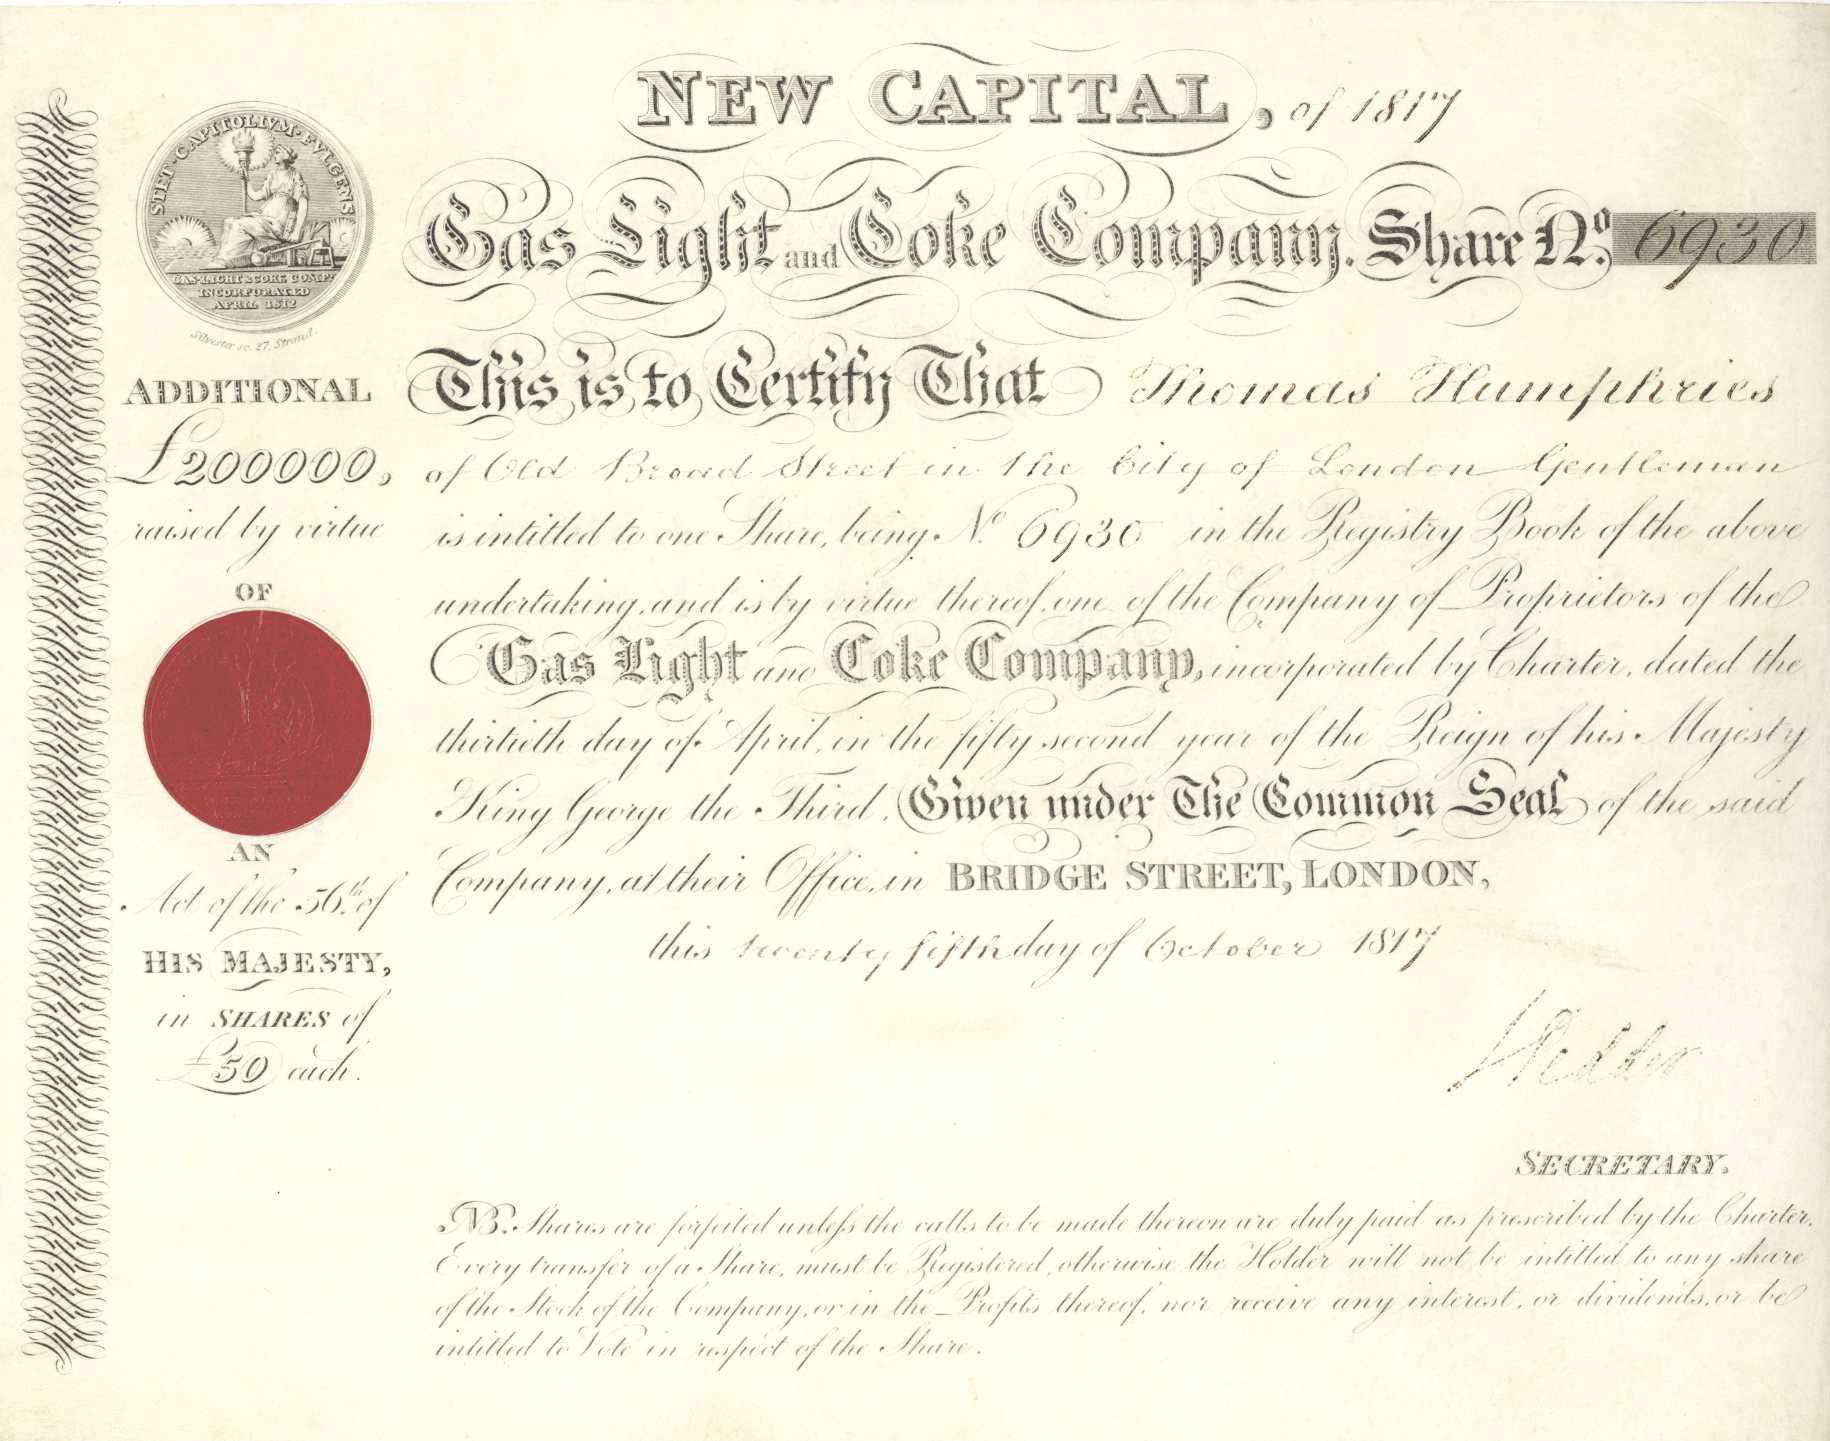 NEW CAPITAL, of 1817
Gas Light and Coke Company. Share No. 6930
STET·CAPITOLIVM·FVLGENS
GAS-LIGHT & COKE COMPY
INCORPORATED
APRIL 1812
Silvester sc. 27, Strand.
ADDITIONAL
£200000,
raised by virtue
OF
AN
Act of the 56th of
HIS MAJESTY,
in SHARES of
£50 each.
This is to Certify That Thomas Humphries
of Old Broad Street in the City of London Gentleman
is intitled to one Share, being No. 6930 in the Registry Book of the above
undertaking, and is by virtue thereof, one of the Company of Proprietors of the
Gas Light and Coke Company, incorporated by Charter, dated the
thirtieth day of April, in the fifty second year of the Reign of his Majesty
King George the Third, Given under The Common Seal of the said
Company, at their Office, in BRIDGE STREET, LONDON,
this twenty fifth day of October 1817
SECRETARY.
NB. Shares are forfeited unless the calls to be made thereon are duly paid as prescribed by the Charter.
Every transfer of a Share, must be Registered, otherwise the Holder will not be intitled to any share
of the Stock of the Company, or in the Profits thereof, nor receive any interest, or dividends, or be
intitled to Vote in respect of the Share.